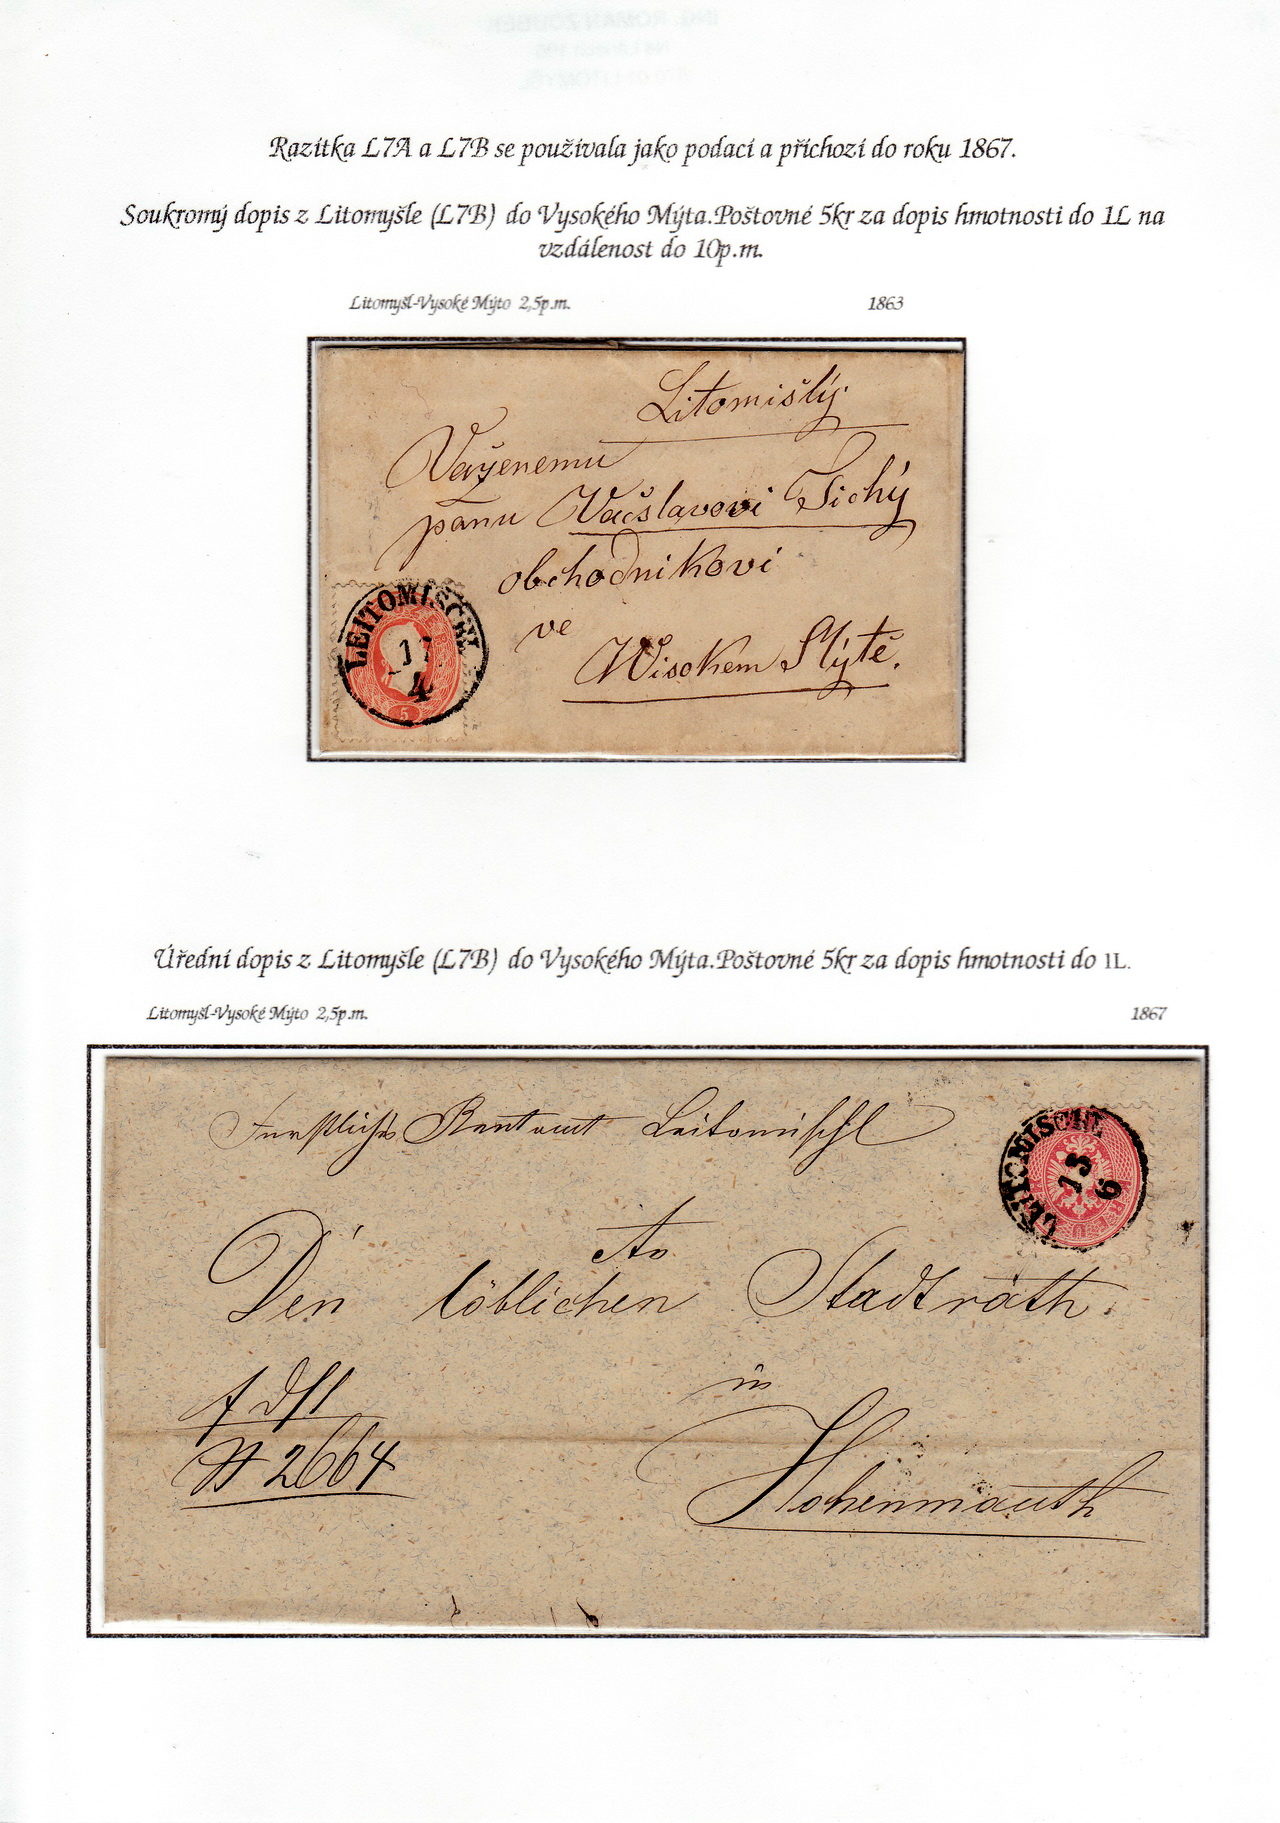 Razítka L7A a L7B se používala jako podací a příchozí do roku 1867.
Soukromý dopis z Litomyšle (L7B) do Vysokého Mýta.Poštovné 5kr za dopis hmotnosti do 1L na
vzdálenost do 10p.m.
Litomyšl-Vysoké Mýto 2,5p.m. 1863
Litomišlý.
Važenemu
panu Vačslavovi Tichý
obchodnikovi
ve
Wisokém Mýtě.
LEITOMISCHL
11
4
5
Úřední dopis z Litomyšle (L7B) do Vysokého Mýta.Poštovné 5kr za dopis hmotnosti do 1L.
Litomyšl-Vysoké Mýto 2,5p.m. 1867
Rentamt Leitomischl
LEITOMISCHL
13
6
An
Den löblichen Stadtrath
in
N 2664
Hohenmauth